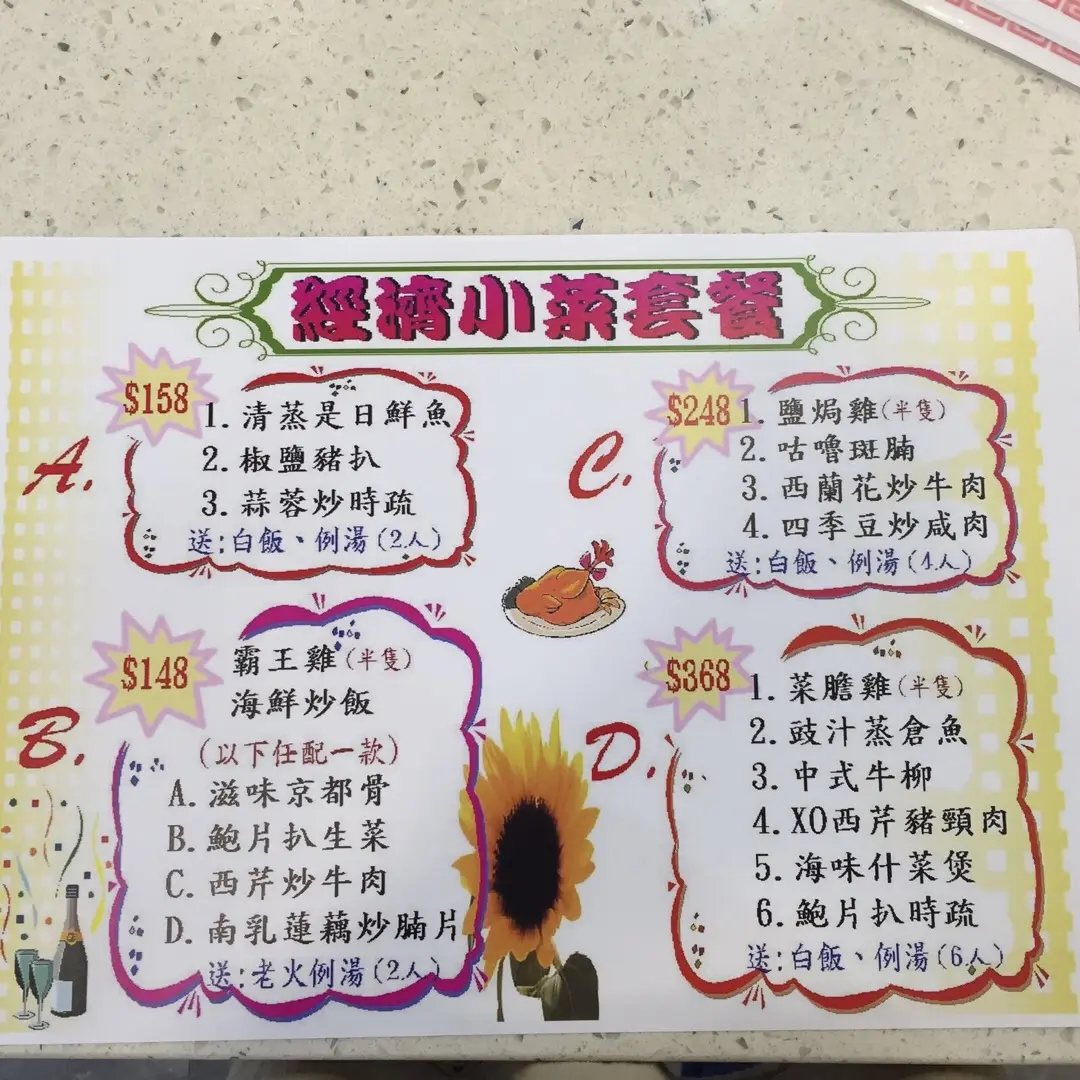 經濟小菜套餐
A.
$158
1. 清蒸是日鮮魚
2. 椒鹽豬扒
3. 蒜蓉炒時疏
送:白飯、例湯(2人)
B.
$148
霸王雞(半隻)
海鮮炒飯
(以下任配一款)
A. 滋味京都骨
B. 鮑片扒生菜
C. 西芹炒牛肉
D. 南乳蓮藕炒腩片
送:老火例湯(2人)
C.
$248
1. 鹽焗雞(半隻)
2. 咕嚕斑腩
3. 西蘭花炒牛肉
4. 四季豆炒咸肉
送:白飯、例湯(4人)
D.
$368
1. 菜膽雞(半隻)
2. 豉汁蒸倉魚
3. 中式牛柳
4. XO西芹豬頸肉
5. 海味什菜煲
6. 鮑片扒時疏
送:白飯、例湯(6人)